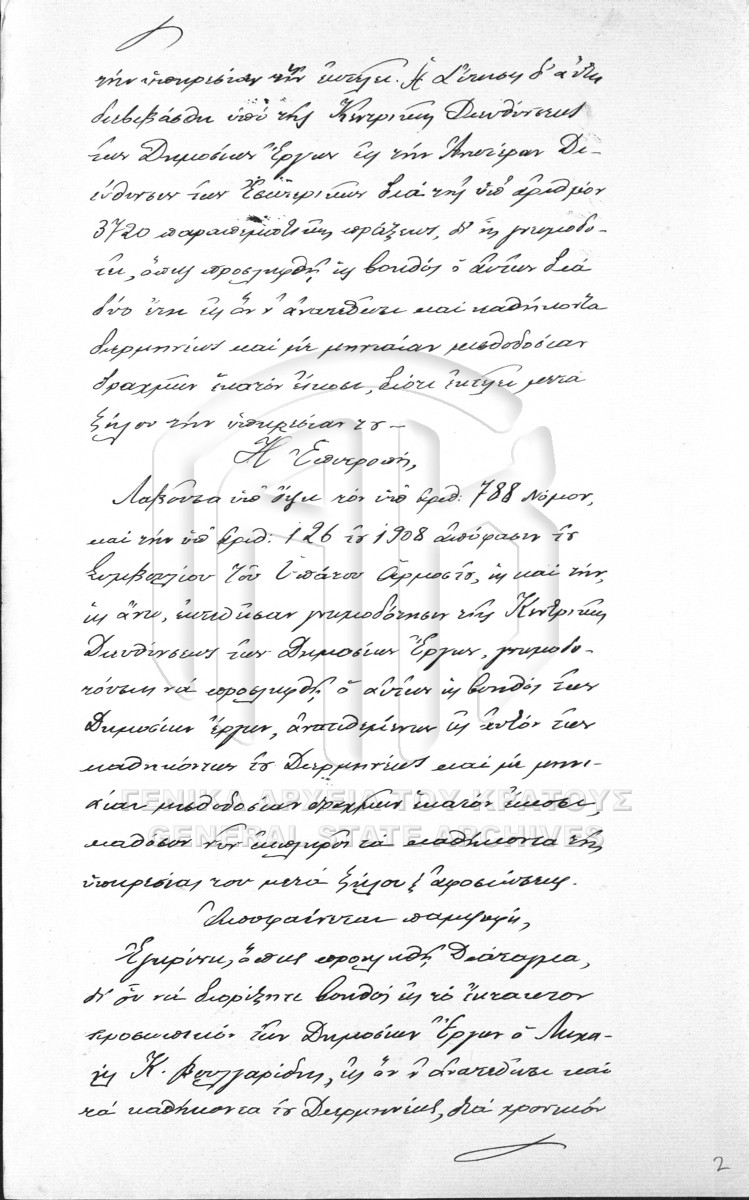 τὴν ὑπηρεσίαν ἣν ἐκτελεῖ. Ἡ αἴτησις δ' αὕτη
διεβιβάσθη ὑπὸ τῆς Κεντρικῆς Διευθύνσεως
τῶν Δημοσίων Ἔργων εἰς τὴν Ἀνωτέραν Δι-
εύθυνσιν τῶν Ἐσωτερικῶν διὰ τῆς ὑπ' ἀριθμὸν
3720 παραπεμπτικῆς πράξεως, δι' ἧς γνωμοδο-
τεῖ, ὅπως προσληφθῇ ὡς βοηθὸς ὁ αἰτῶν διὰ
δύο ἔτη εἰς ὃν ν' ἀνατεθῶσι καὶ καθήκοντα
διερμηνέως καὶ μὲ μηνιαίαν μισθοδοσίαν
δραχμῶν ἑκατὸν εἴκοσι, διότι ἐκτελεῖ μετὰ
ζήλου τὴν ὑπηρεσίαν του —
Ἡ Ἐπιτροπή,
Λαβοῦσα ὑπ' ὄψει τὸν ὑπ' ἀριθ: 788 Νόμον,
καὶ τὴν ὑπ' ἀριθ: 126 τοῦ 1908 ἀπόφασιν τοῦ
Συμβουλίου τοῦ Ὑπάτου Ἁρμοστοῦ, ὡς καὶ τὴν,
ὡς ἄνω, ἐκτεθεῖσαν γνωμοδότησιν τῆς Κεντρικῆς
Διευθύνσεως τῶν Δημοσίων Ἔργων, γνωμοδο-
τούσης νὰ προσληφθῇ ὁ αἰτῶν ὡς βοηθὸς τῶν
Δημοσίων ἔργων, ἀνατιθεμένων εἰς αὐτὸν τῶν
καθηκόντων τοῦ Διερμηνέως καὶ μὲ μηνι-
αίαν μισθοδοσίαν δραχμῶν ἑκατὸν εἴκοσι,
καθόσον νῦν ἐκπληροῖ τὰ καθήκοντα τῆς
ὑπηρεσίας του μετὰ ζήλου κ' ἀφοσιώσεως.
Ἀποφαίνεται παμψηφεί,
Ἐγκρίνει, ὅπως προκληθῇ Διάταγμα,
δι' οὗ νὰ διορίζηται βοηθὸς εἰς τὸ ἔκτακτον
προσωπικὸν τῶν Δημοσίων Ἔργων ὁ Μιχα-
ὴλ Κ. Βουλγαρίδης, εἰς ὃν ν' ἀνατεθῶσι καὶ
τὰ καθήκοντα τοῦ Διερμηνέως, διὰ χρονικὸν
2
ΓΕΝΙΚΑ ΑΡΧΕΙΑ ΤΟΥ ΚΡΑΤΟΥΣ
GENERAL STATE ARCHIVES